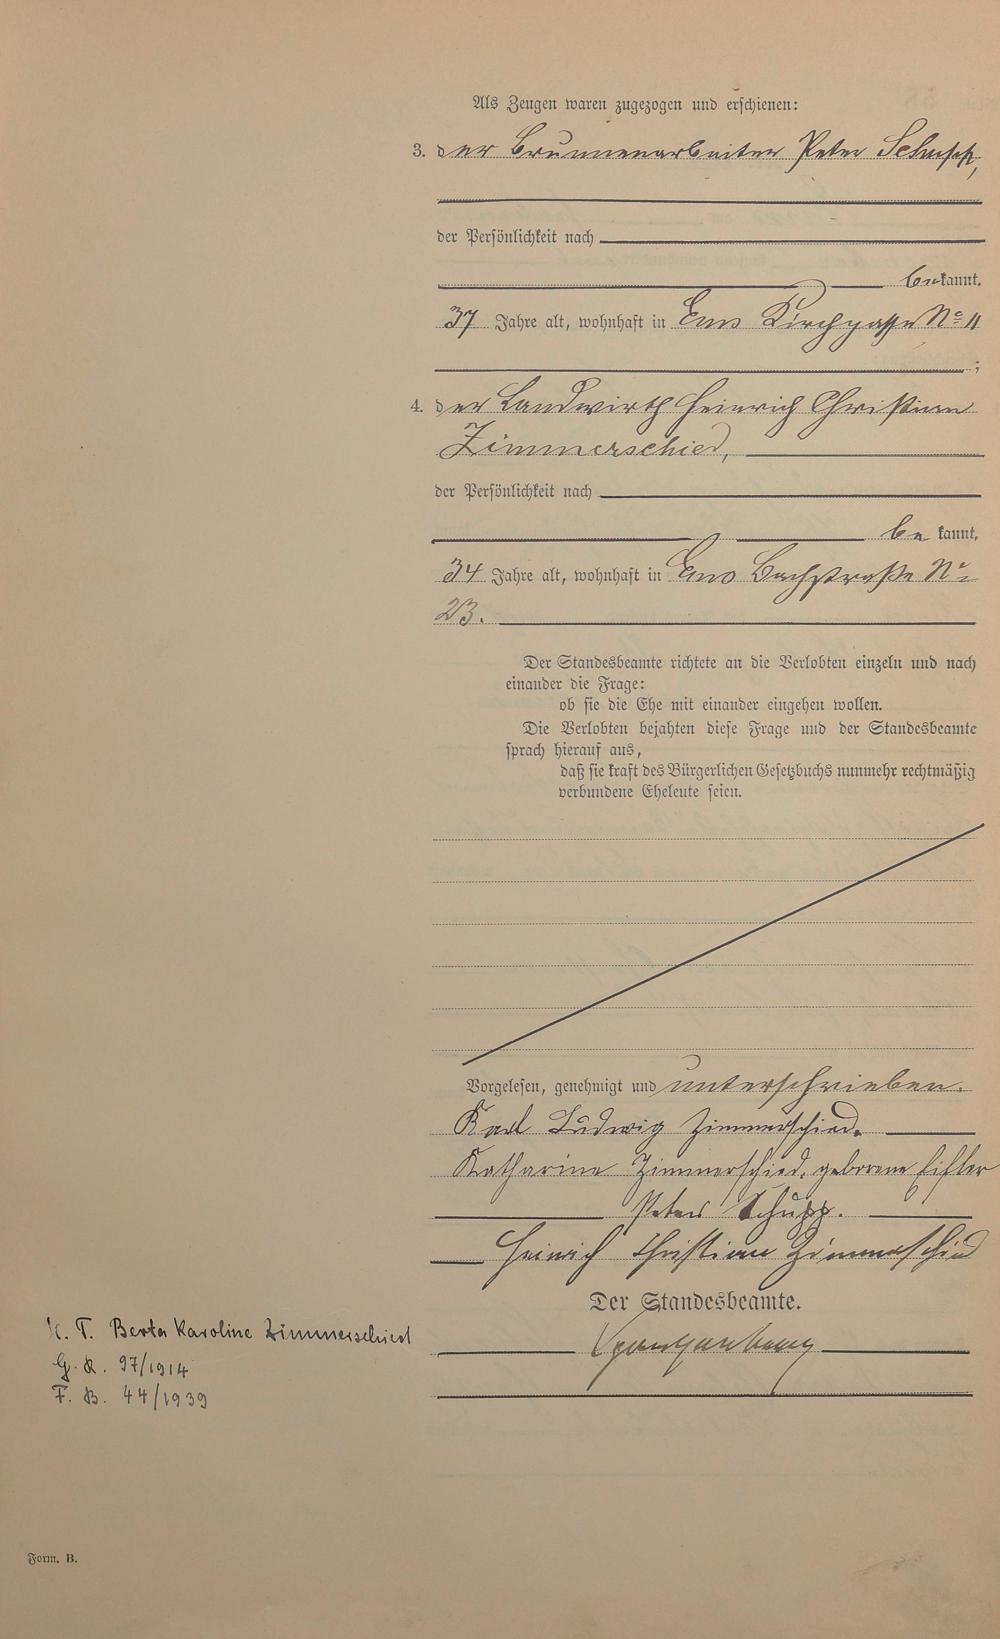 Als Zeugen waren zugezogen und erschienen:
3. der Brunnenarbeiter Peter Schupp,
der Persönlichkeit nach
bekannt,
37 Jahre alt, wohnhaft in Ems Kirchgasse No 11
;
4. der Landwirth Heinrich Christian
Zimmerschied,
der Persönlichkeit nach
bekannt,
34 Jahre alt, wohnhaft in Ems Bachstraße No
23.
Der Standesbeamte richtete an die Verlobten einzeln und nach
einander die Frage:
ob sie die Ehe mit einander eingehen wollen.
Die Verlobten bejahten diese Frage und der Standesbeamte
sprach hierauf aus,
daß sie kraft des Bürgerlichen Gesetzbuchs nunmehr rechtmäßig
verbundene Eheleute seien.
Vorgelesen, genehmigt und unterschrieben.
Karl Ludwig Zimmerschied.
Katharina Zimmerschied, geborene Eifler
Peter Schupp.
Heinrich Christian Zimmerschied
Der Standesbeamte.
T. Berta Karoline Zimmerschied
G. R. 97/1914
F. B. 44/1939
Form. B.